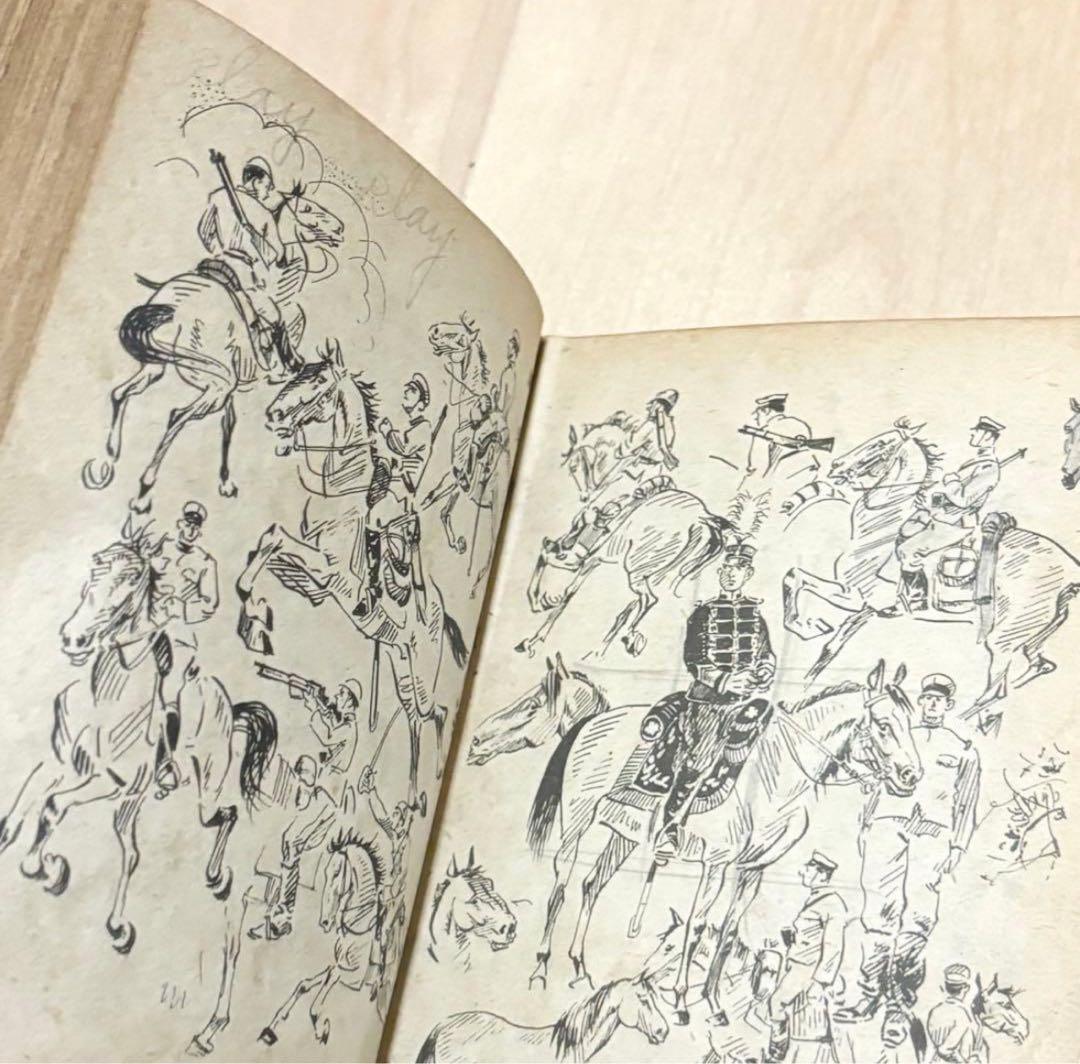 play
play